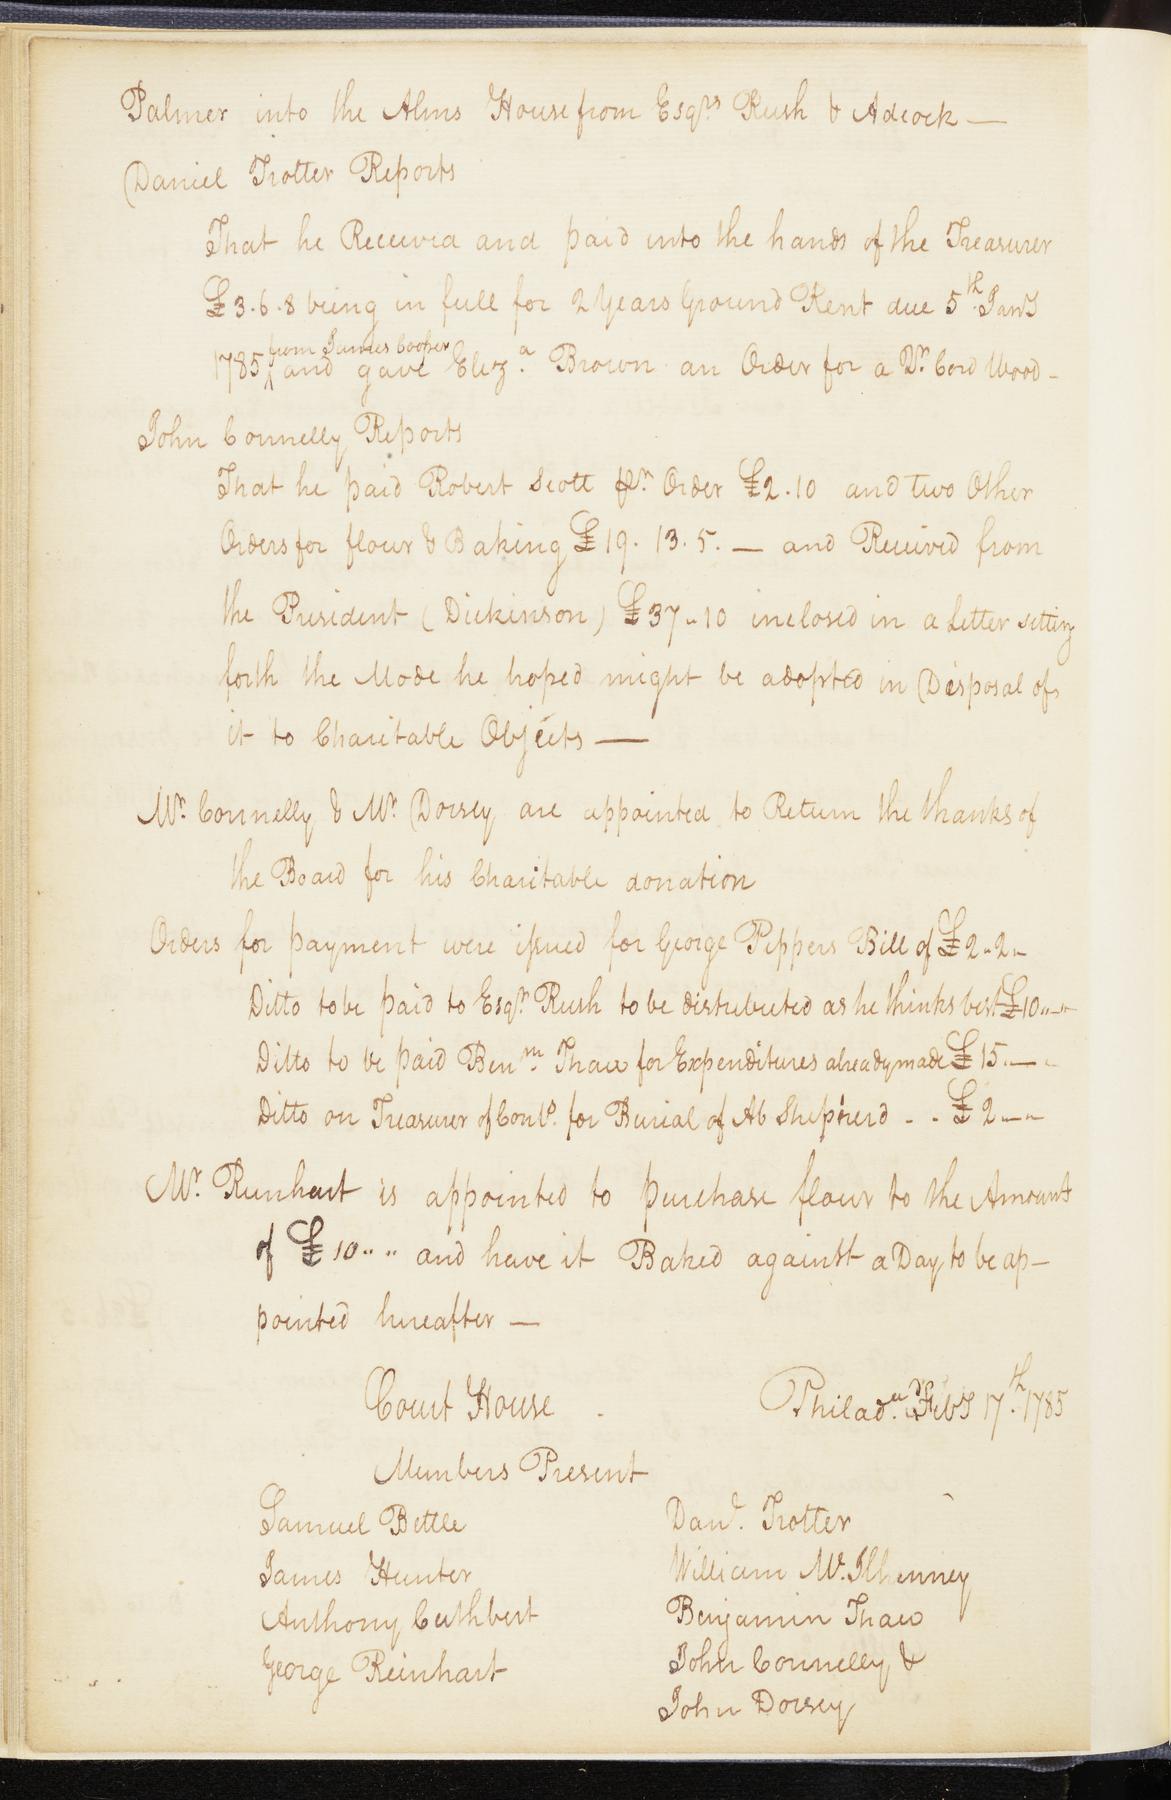 Palmer into the Alms House from Esqrs Rush & Adcock —
Daniel Trotter Reports
That he Received and paid into the hands of the Treasurer
£3.6.8 being in full for 2 Years Ground Rent due 5th Jany
from James Cooper
1785 ^ and gave Eliza. Brown an Order for a Qr. Cord Wood -
John Connelly Reports
That he paid Robert Scott pr. Order £2.10 and two Other
Orders for flour & Baking £19.13.5. — and Received from
the President (Dickinson) £37"10 inclosed in a Letter setting
forth the Mode he hoped might be adopted in Disposal of
it to Charitable Objects —
Mr. Connelly & Mr. Dorsey are appointed to Return the thanks of
the Board for his Charitable donation
Orders for payment were issued for George Peppers Bill of £2"2"
Ditto to be paid to Esqr. Rush to be distributed as he thinks best £10"—"
Ditto to be paid Benm. Thaw for Expenditures already made £15 — "
Ditto on Treasurer of Contd. for Burial of Ab Shepherd - - £2 — "
Mr. Runhart is appointed to purchase flour to the Amount
of £10 " " and have it Baked against a Day to be ap-
pointed hereafter —
Court House - Philada. Feby 17th. 1785
Members Present
Samuel Bettle Danl. Trotter
James Hunter William Mc.Ilhenney
Anthony Cuthbert Benjamin Thaw
George Reinhart John Connelly &
John Dorsey